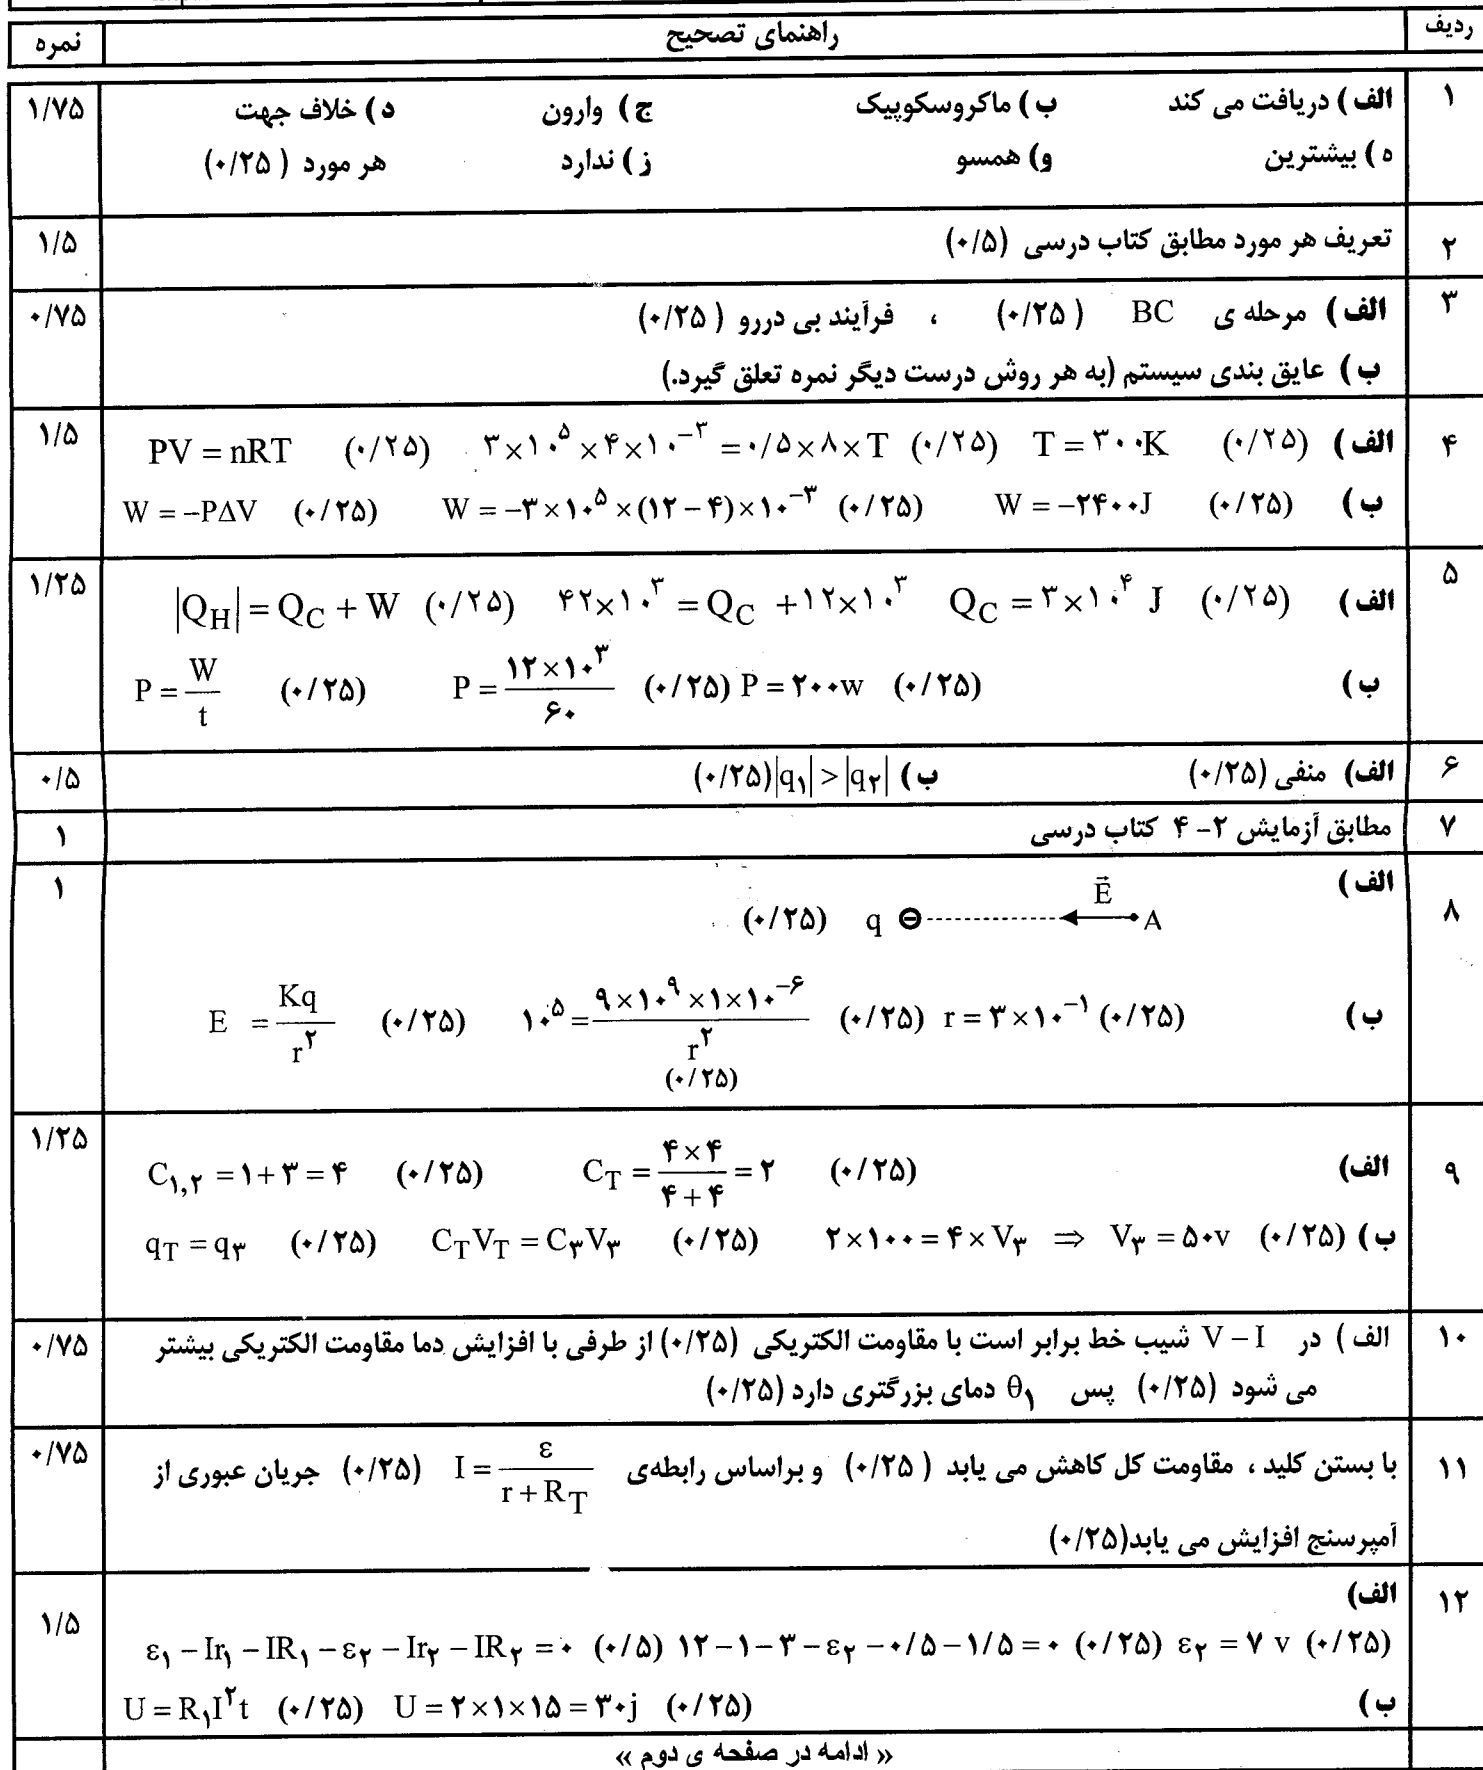 ردیف راهنمای تصحیح نمره
۱ الف) دریافت می کند ب) ماکروسکوپیک ج) وارون د) خلاف جهت ۱/۷۵
ه) بیشترین و) همسو ز) ندارد هر مورد (۰/۲۵)
۲ تعریف هر مورد مطابق کتاب درسی (۰/۵) ۱/۵
۳ الف) مرحله ی BC (۰/۲۵) ، فرآیند بی دررو (۰/۲۵) ۰/۷۵
ب) عایق بندی سیستم (به هر روش درست دیگر نمره تعلق گیرد.)
۴ الف) PV = nRT (۰/۲۵) ۳×۱۰^۵×۴×۱۰^−۳ = ۰/۵×۸×T (۰/۲۵) T = ۳۰۰K (۰/۲۵) ۱/۵
ب) W = −PΔV (۰/۲۵) W = −۳×۱۰^۵×(۱۲−۴)×۱۰^−۳ (۰/۲۵) W = −۲۴۰۰J (۰/۲۵)
۵ الف) |Q_H| = Q_C + W (۰/۲۵) ۴۲×۱۰^۳ = Q_C +۱۲×۱۰^۳ Q_C = ۳×۱۰^۴ J (۰/۲۵) ۱/۲۵
ب) P = W/t (۰/۲۵) P = ۱۲×۱۰^۳/۶۰ (۰/۲۵) P = ۲۰۰w (۰/۲۵)
۶ الف) منفی (۰/۲۵) ب) |q_۱| > |q_۲| (۰/۲۵) ۰/۵
۷ مطابق آزمایش ۲- ۴ کتاب درسی ۱
۸ الف) ۱
(۰/۲۵) q ⊖ E⃗ A
ب) E = Kq/r^۲ (۰/۲۵) ۱۰^۵ = ۹×۱۰^۹×۱×۱۰^−۶/r^۲ (۰/۲۵) r = ۳×۱۰^−۱ (۰/۲۵)
(۰/۲۵)
۹ الف) C_۱,۲ = ۱+۳ = ۴ (۰/۲۵) C_T = ۴×۴/۴+۴ = ۲ (۰/۲۵) ۱/۲۵
ب) q_T = q_۳ (۰/۲۵) C_T V_T = C_۳V_۳ (۰/۲۵) ۲×۱۰۰ = ۴×V_۳ ⇒ V_۳ = ۵۰v (۰/۲۵)
۱۰ الف) در V−I شیب خط برابر است با مقاومت الکتریکی (۰/۲۵) از طرفی با افزایش دما مقاومت الکتریکی بیشتر ۰/۷۵
می شود (۰/۲۵) پس θ_۱ دمای بزرگتری دارد (۰/۲۵)
۱۱ با بستن کلید ، مقاومت کل کاهش می یابد (۰/۲۵) و براساس رابطه‌ی I = ε/r+R_T (۰/۲۵) جریان عبوری از ۰/۷۵
آمپرسنج افزایش می یابد(۰/۲۵)
۱۲ الف) ۱/۵
ε_۱ − Ir_۱ − IR_۱ − ε_۲ − Ir_۲ − IR_۲ = ۰ (۰/۵) ۱۲−۱−۳−ε_۲−۰/۵−۱/۵ = ۰ (۰/۲۵) ε_۲ = ۷ v (۰/۲۵)
ب) U = R_۱I^۲t (۰/۲۵) U = ۲×۱×۱۵ = ۳۰j (۰/۲۵)
« ادامه در صفحه ی دوم »